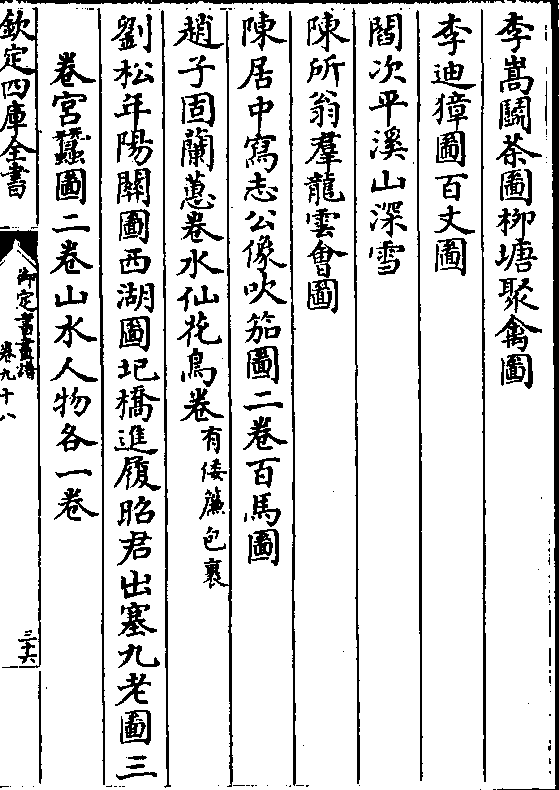 李嵩鬭茶圖柳塘聚禽圖
李迪獐圖百丈圖
閻次平溪山深雪
陳所翁羣龍雲會圖
陳居中寫志公像吹笳圖二卷百馬圖
趙子固蘭蕙卷水仙花鳥卷有倭簾包裹
劉松年陽關圖西湖圖圯橋進履昭君出塞九老圖三
卷宮蠶圖二卷山水人物各一卷
欽定四庫全書
御定書畫譜
卷九十八
三十六